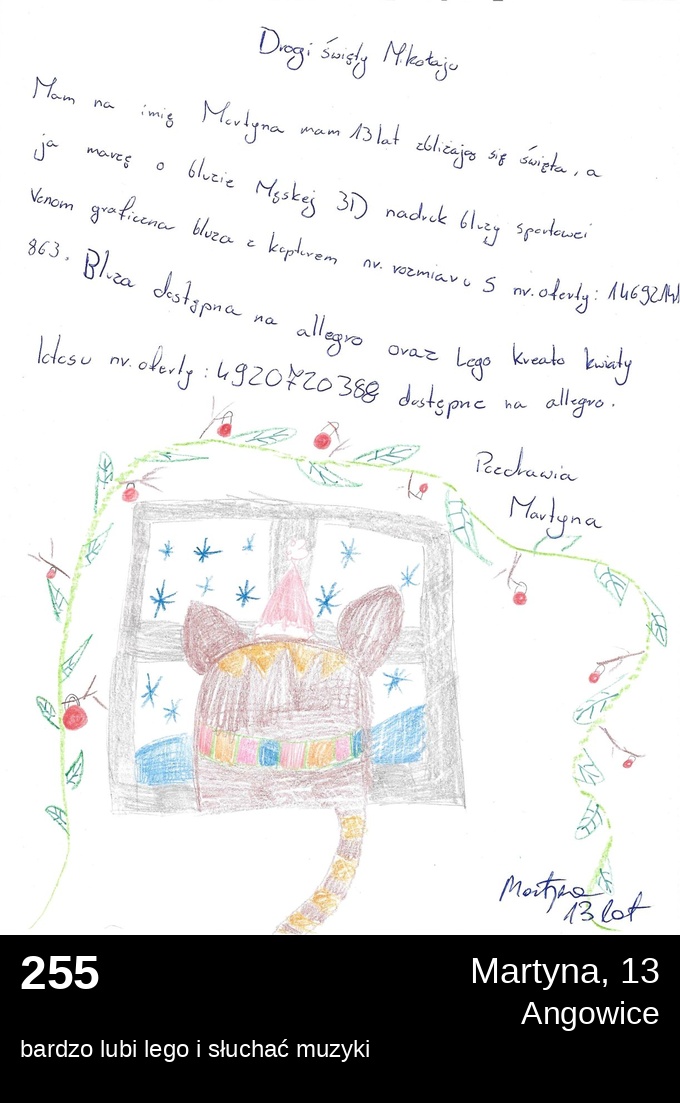 Drogi święty Mikołaju
Mam na imię Martyna mam 13 lat zbliżają się święta, a
ja marzę o bluzie Męskej 3D nadruk bluzy sportowei
Venom graficzna bluza z kapturem nr. rozmiaru S nr. oferty: 1469214
863. Bluza dostępna na allegro oraz Lego kreato kwiaty
lotosu nr. oferty: 4920720388 dostępne na allegro.
Pozdrawia
Martyna
Martyna
13 lat
255
Martyna, 13
Angowice
bardzo lubi lego i słuchać muzyki